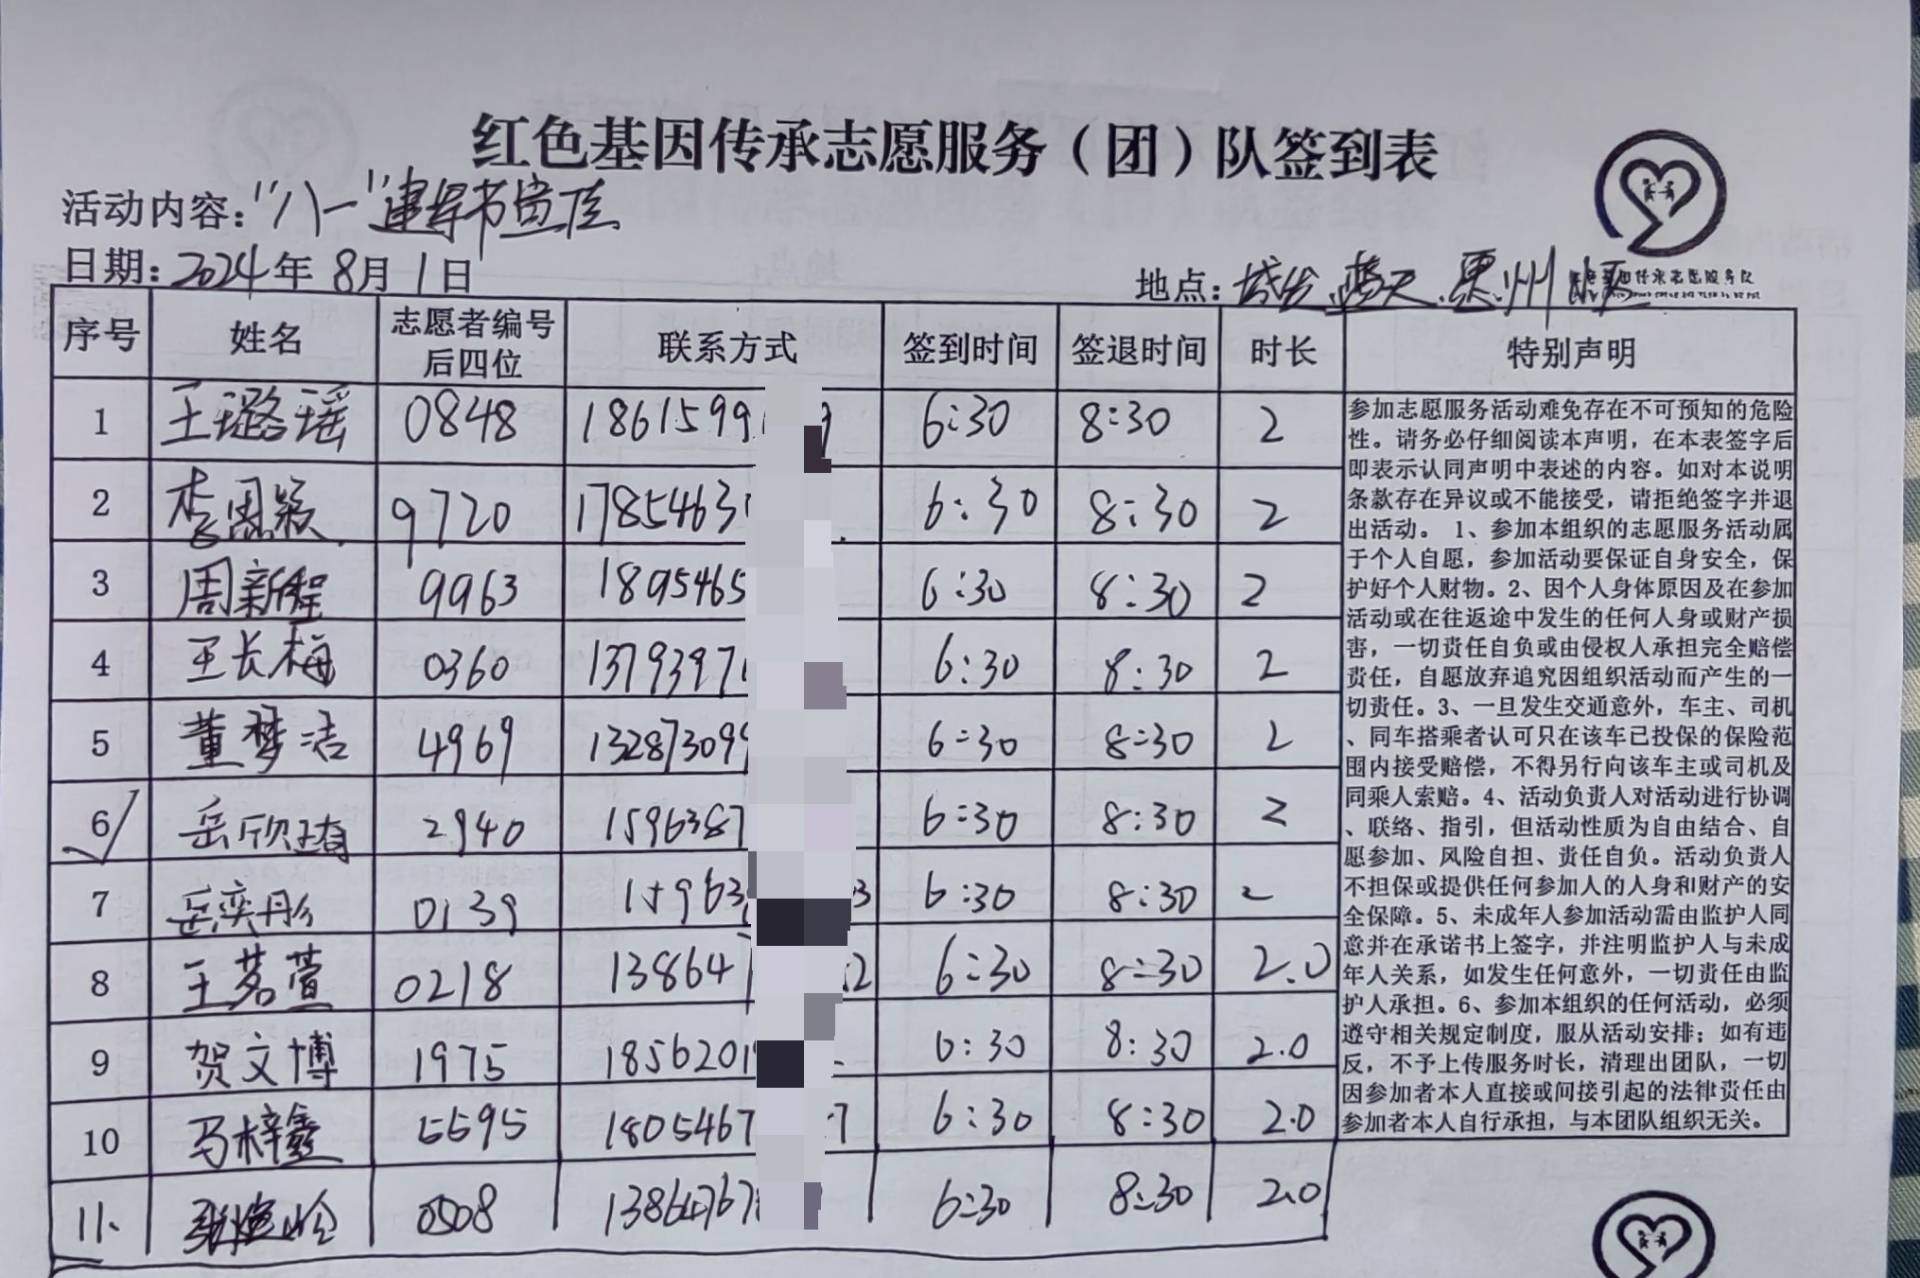 红色基因传承志愿服务（团）队签到表
活动内容："八一"建军节宣传
日期：2024年8月1日
地点：蓝天 惠州
序号 姓名 志愿者编号后四位 联系方式 签到时间 签退时间 时长 特别声明
1 王璐瑶 0848 1861599 9 6:30 8:30 2
2 李思颖 9720 17854630 6:30 8:30 2
3 周新程 9963 1895465 6:30 8:30 2
4 王长梅 0360 1379397 6:30 8:30 2
5 董梦洁 4969 132873099 6:30 8:30 2
6 岳欣琦 2940 1596387 6:30 8:30 2
7 岳奕彤 0139 15963 3 6:30 8:30 2
8 王茗萱 0218 13864 2 6:30 8:30 2.0
9 贺文博 1975 1856201 6:30 8:30 2.0
10 马梓鑫 5595 1805467 7 6:30 8:30 2.0
11. 0508 1386476 6:30 8:30 2.0
参加志愿服务活动难免存在不可预知的危险
性。请务必仔细阅读本声明，在本表签字后
即表示认同声明中表述的内容。如对本说明
条款存在异议或不能接受，请拒绝签字并退
出活动。 1、参加本组织的志愿服务活动属
于个人自愿，参加活动要保证自身安全，保
护好个人财物。2、因个人身体原因及在参加
活动或在往返途中发生的任何人身或财产损
害，一切责任自负或由侵权人承担完全赔偿
责任，自愿放弃追究因组织活动而产生的一
切责任。3、一旦发生交通意外，车主、司机
、同车搭乘者认可只在该车已投保的保险范
围内接受赔偿，不得另行向该车主或司机及
同乘人索赔。4、活动负责人对活动进行协调
、联络、指引，但活动性质为自由结合、自
愿参加、风险自担、责任自负。活动负责人
不担保或提供任何参加人的人身和财产的安
全保障。5、未成年人参加活动需由监护人同
意并在承诺书上签字，并注明监护人与未成
年人关系，如发生任何意外，一切责任由监
护人承担。6、参加本组织的任何活动，必须
遵守相关规定制度，服从活动安排；如有违
反，不予上传服务时长，清理出团队，一切
因参加者本人直接或间接引起的法律责任由
参加者本人自行承担，与本团队组织无关。